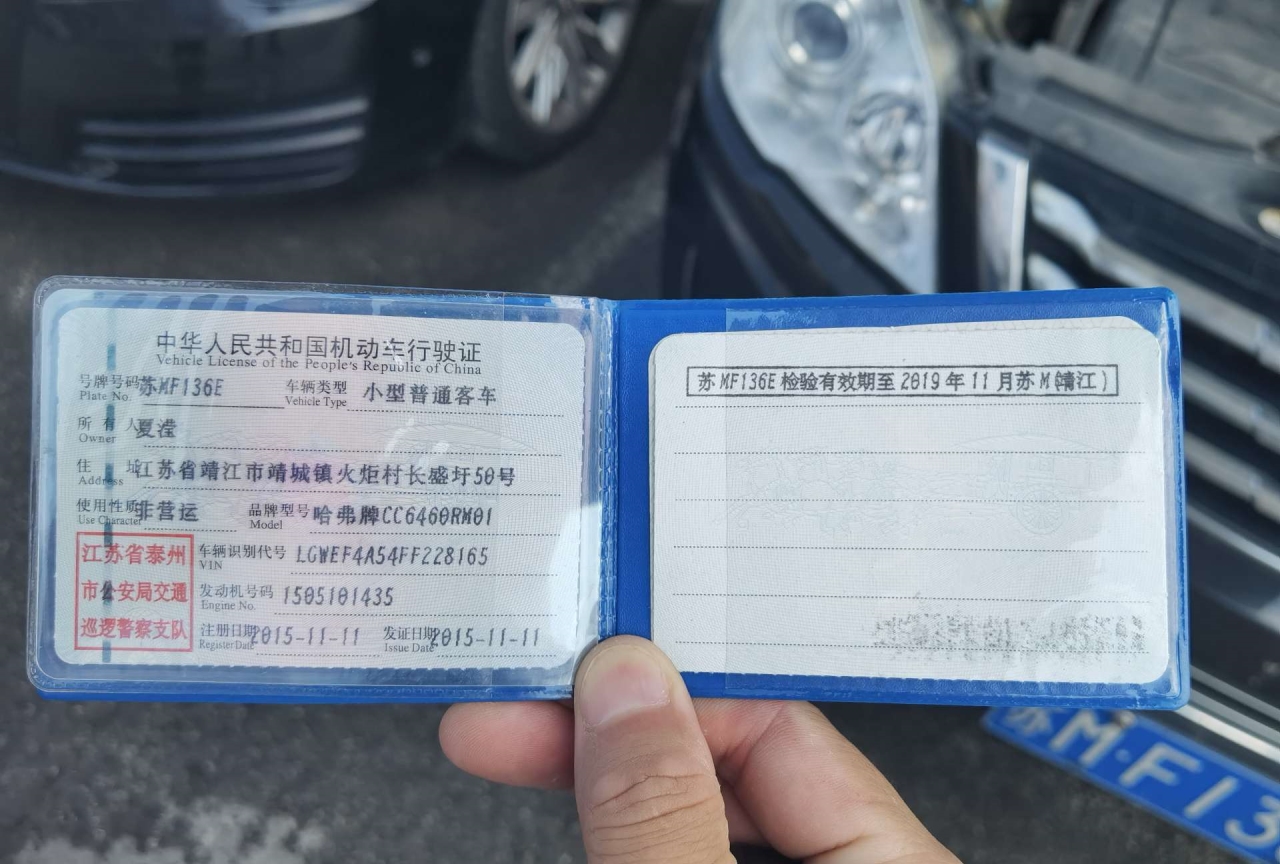 中华人民共和国机动车行驶证
Vehicle License of the People's Republic of China
号牌号码 苏MF136E 车辆类型 小型普通客车
Plate No. Vehicle Type
所有人 夏滢
Owner
住址 江苏省靖江市靖城镇火炬村长盛圩50号
Address
使用性质 非营运 品牌型号 哈弗牌CC6460RM01
Use Character Model
江苏省泰州
市公安局交通
巡逻警察支队
车辆识别代号 LGWEF4A54FF228165
VIN
发动机号码 1505101435
Engine No.
注册日期 2015-11-11 发证日期 2015-11-11
Register Date Issue Date
苏MF136E 检验有效期至2019年11月苏M(靖江)
苏M·F13